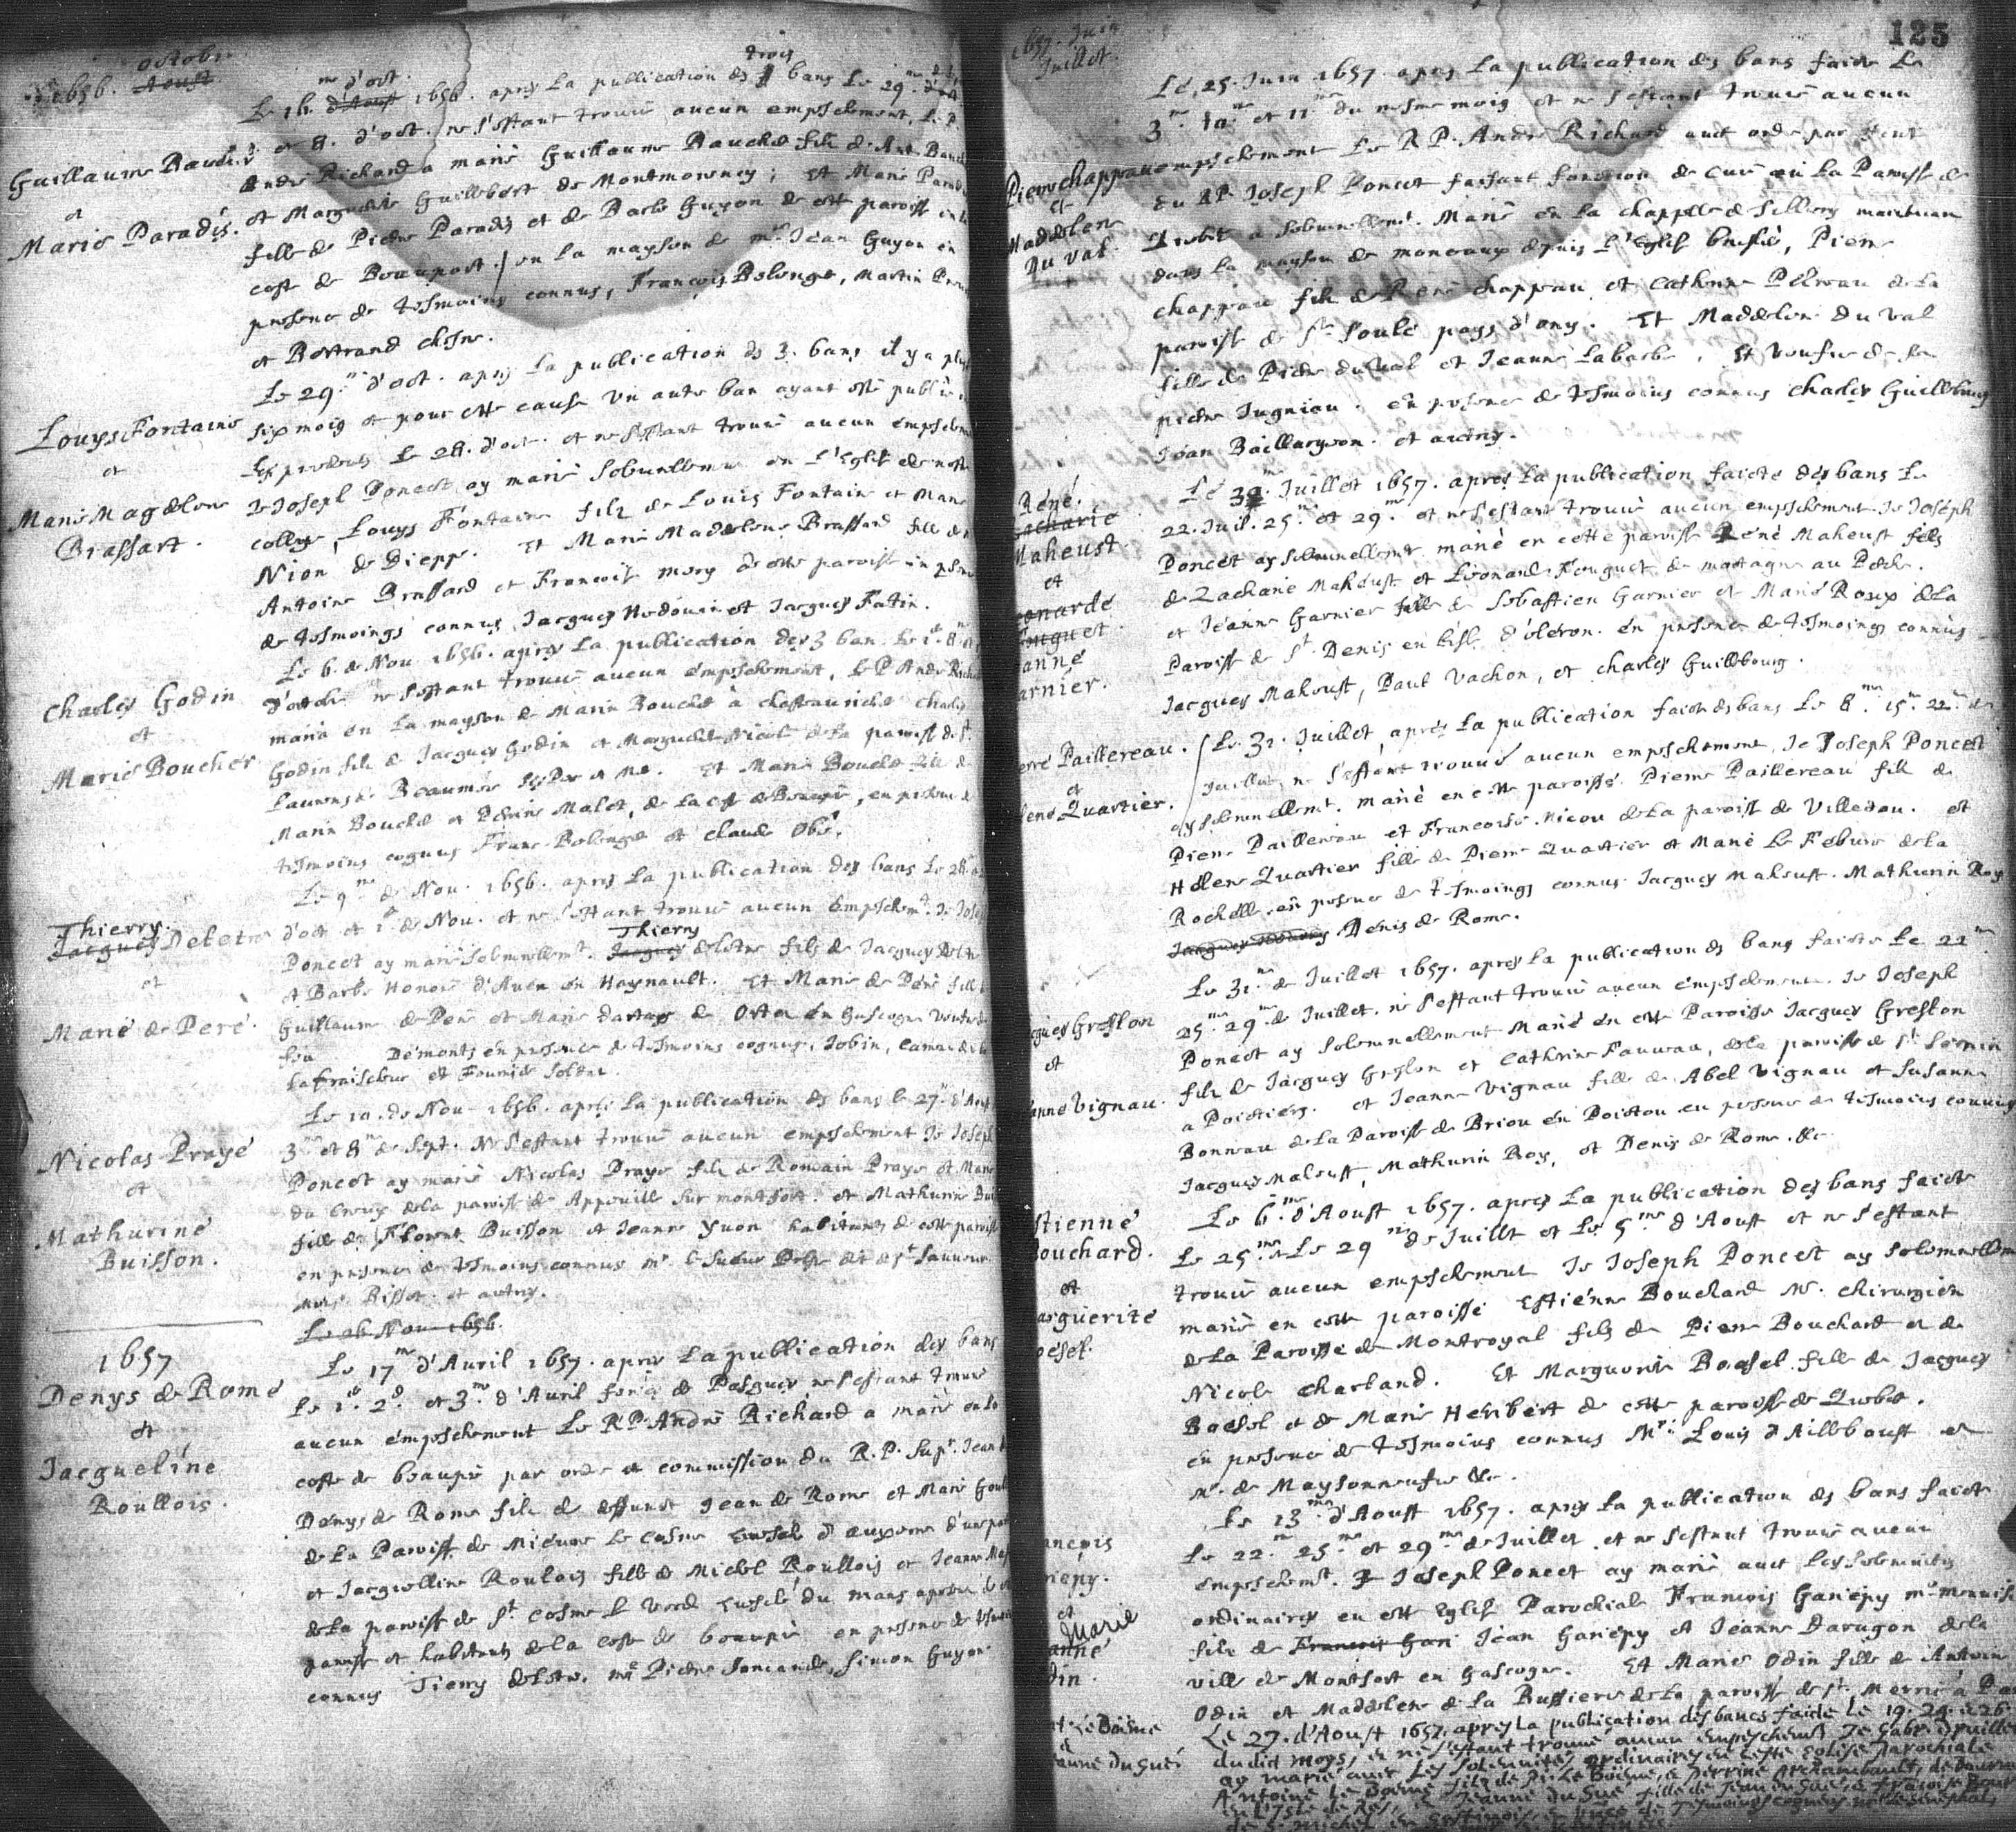 1656. Aoust octobr.
Guillaume Bauché
et
Marie Paradis.
Le 16.me d'Aoust d'oct. 1656. apres La publication des 3 trois bans Le 29.me
et 8. d'oct. ne s'estant trouvé aucun empeschement, Le P.
André Richard a marié Guillaume Bauché fils de Ant. Bauché
et Marguerite Guillebert de Montmorency; Et Marie Paradis
fille de Pierre Paradis et de Barbe Guyon de cette paroisse en la
coste de Beauport. / en la mayson de mr. Jean Guyon en
presence de tesmoins connus, François Belenge, Martin
et Bertrand chesne.
Louys Fontaine
et
Marie Magdelene
Brassart.
Le 29.me d'oct. apres La publication des 3. bans il y a plus
six mois et pour cette cause un autre ban ayant esté publié
Le 28. d'oct. et ne s'estant trouvé aucun empeschement
Je Joseph Poncet ay marié solennellement en L'Eglise de nostre
college, Louys Fontaine filz de Louis Fontaine et Marie
Nion de Dieppe. Et Marie Madelene Brassard fille de
Antoine Brassard et Francoise Mery de cette paroisse en
de tesmoings connus Jacques Hedouin et Jacques Fatin.
Charles Godin
et
Marie Boucher
Le 6 de Nov. 1656. apres La publication des 3 ban Le 1. 8
d'octobre ne s'estant trouvé aucun empeschement, Le P André Richard
marié en La mayson de Marin Bouché à chasteauriché Charles
Godin fils de Jacques Godin et Marguerite Nicole de La paroisse de St
Laurens de Beaumé Et Marie Bouché fille de
Marin Bouché et Perine Malet, de La coste de Beaupré, en presence de
tesmoins cognus Franc. Belenge et claude Obé.
Thierry
Jacques Deletre
et
Marie de Peré.
Le 9.me de Nov. 1656. apres La publication des bans Le 28
d'oct et 1. de Nov. et ne s'estant trouvé aucun empeschemt. Je Joseph
Poncet ay marié solennellemt. Jacques Thierry delettre fils de Jacques Deletre
et Barbe Honoré d'Auen en Haynault. Et Marie de Peré fille
Guillaume de Peré et Marie dartays de Ortes en Gascogne veufve de
feu Demonts en presence de tesmoins cognus, Jobin,
La fraischeur et Fournier soldat.
Nicolas Prayé
et
Mathurine
Buisson.
Le 10. de Nov 1656. apres La publication des bans le 27. d'Aoust
3.me et 8.me de Sept. Ne s'estant trouvé aucun empeschement Je Joseph
Poncet ay marié Nicolas Praye fils de Romain Praye et Marie
du creux de la paroisse de Appeville sur montfort. et Mathurine Buisson
fille de Florent Buisson et Jeanne Yvon habitants de cette paroisse
en presence de tesmoins connus mr. le Sueur Prestre dit de St Sauveur
Rissot. et autres.
Le 26 Nov 1656.
1657
Denys de Rome
et
Jacqueline
Roullois.
Le 17me d'Avril 1657. apres La publication des bans
Le 1. 2. et 3.me d'Avril de Pasques ne s'estant trouvé
aucun empeschement Le R.P. André Richard a marié en la
coste de beaupré par ordre et commission du R.P. Supr. Jean
Denys de Rome fils de deffunct Jean de Rome et Marie
de La Paroisse de Le Cosme d'auxerre
et Jacquelline Roulois fille de Michel Roullois et Jeanne
de La paroisse de St. Cosme Le Verd Evesché du Mans
paroisse et habitants de la coste de beaupré en presence de tesmoins
connus Tierry deletre, mr. Pierre, Simon Guyon
125
1657. Juin
Juillet.
Pierre Chappeau
et
Madelene
Du Val.
Le 25. Juin 1657. apres La publication des bans faicte Le
3.me 10.me et 11.me du mesme mois et ne s'estant trouvé aucun
empeschement Le R P. André Richard avec ordre par
du RP Joseph Poncet faisant fonction de curé en La Paroisse de
Quebec a solennellemt. Marié en La chappelle de Sillery maintenant
dans la mayson de monceaux depuis L'Eglise bruslée, Pierre
chappeau fils de René chappeau et Catherine Pelereau de La
paroisse de St. Soulé pays d'. Et Maddelene du Val
fille de Pierre duVal et Jeanne Labarbe. Et veufve de feu
pierre Jugniau. en presence de tesmoins connus Charles Guillebourg
Jean Baillargeon. et autres.
René.
Zacharie
Maheust.
et
Leonarde
Fouguet.
Jeanne
Garnier.
Le 30.me Juillet 1657. apres La publication faicte des bans Le
22. Juil. 25.me et 29.me et ne s'estant trouvé aucun empeschement Je Joseph
Poncet ay solennellement marié en cette paroisse René Maheust fils
de Zacharie Maheust et Leonarde Fouguet de mortagne au Perche.
et Jeanne Garnier fille de Sebastien Garnier et Marie Roux de La
Paroisse de St. Denis en L'isle d'oleron. en presence de tesmoings connus
Jacques Maheust, Paul Vachon, et charles Guillebourg.
Pierre Paillereau.
et
Helene Quartier.
Le 31. Juillet, apres La publication faicte des bans Le 8.me 15.me 22.me de
Juillet, ne s'estant trouvé aucun empeschement, Je Joseph Poncet
ay solennellemt. marié en cette paroisse Pierre Paillereau fils de
Pierre Paillereau et Francoise Nicou de La paroisse de Villedou. et
Helene Quartier fille de Pierre Quartier et Marie Le Febure de La
Rochelle, en presence de tesmoings connus Jacques Maheust. Mathurin Roy
Denis de Rome.
Jacques Greslon
et
Jeanne Vignau.
Le 31.me de Juillet 1657. apres La publication des bans faicte Le 22.me
25.me 29.me de Juillet. ne s'estant trouvé aucun empeschement. Je Joseph
Poncet ay solennellement Marié en cette Paroisse Jacques Greslon
fils de Jacques Greslon et Catherine Fauveau, de la paroisse de St Sernin
a Poictiers. et Jeanne Vignau fille de Abel Vignau et Susanne
Bonneau de La Paroisse de Briou en Poictou en presence de tesmoins connus
Jacques Maheust, Mathurin Roy, et Denis de Rome. &c.
Estienne
Bouchard.
et
Marguerite
Boesel.
Le 6.me d'Aoust 1657. apres La publication des bans faicte
Le 25.me Le 29me de Juillet et Le 5me d'Aoust et ne s'estant
trouvé aucun empeschement Je Joseph Poncet ay solennellement
marié en cette paroisse Estienne Bouchard Mr. chirurgien
de La Paroisse de Montroyal fils de Pierre Bouchard et de
Nicole Charland. Et Marguerite Boesel fille de Jacques
Boesel et de Marie Heribert de cette paroisse de Quebec.
en presence de tesmoins connus Mr. Louis d'Aillboust et
Mr. de Maysonneufve &c.
François
Gariépy.
et
Marie
Jeanne
Odin.
Le 13.me d'Aoust 1657. apres La publication des bans faicte
Le 22.me 25.me et 29.me de Juillet et ne s'estant trouvé aucun
empeschemt. Je Joseph Poncet ay marié avec les solennités
ordinaires en cette Eglise Parochiale Francois Gariépy mr. menuisier
fils de Francois Gari Jean Gariépy et Jeanne Darugon de la
ville de Montfort en Gascogne. Et Marie Odin fille de Antoine
Odin et Maddelene de La Russiere de La paroisse de St. Merri à Paris
Ant. Le Boême
et
Jeanne du Gué
Le 27. d'Aoust 1657. apres La publication des bancs faicte Le 19. 24. & 26.
dudict moys, & ne s'estant trouvé aucun empeschemt. Je Gabr. Druilletes
ay marié avec Les solennités ordinaires en ceste eglise parochiale
Antoine Le Boême filz de Pi. Le Boême, & Perrine Archambault,
en L'Isle de Res, & Jeanne du Gué fille de Jean du Gué & Francoise
de St. Michel